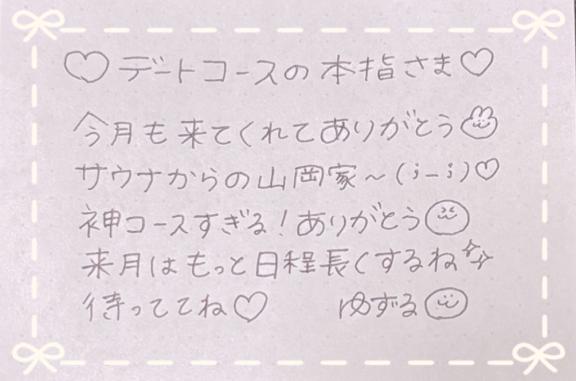 ♡デートコースの本指さま♡
今月も来てくれてありがとう
サウナからの山岡家～(；_；)♡
神コースすぎる！ありがとう
来月はもっと日程長くするね
待っててね♡　ゆずる